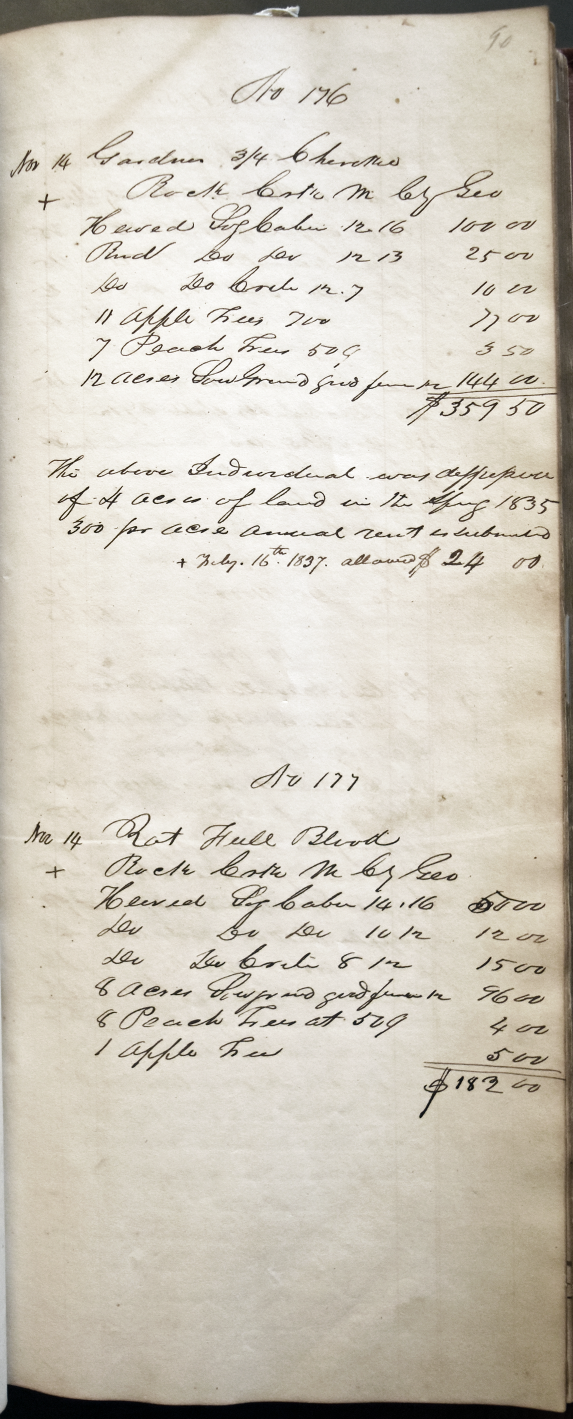 90
No 176
Nov 14 Gardner 3/4 Cherokee
+ Rock Crek M Cty Geo
Hewed Log Cabin 12.16 100 00
Rnd Do Do 12 13 25 00
Do Do Crib 12.7 10 00
11 Apple Trees 700 77 00
7 Peach Trees 50¢ 3 50
12 acres Low Grund gud fence 12 144 00
$359 50
The above Indevidual was
of 4 acres of land in the Spring 1835
300 pr acre annual rent is submited
+ Feby. 16th 1837. allowed $ 24 00
No 177
Nov 14 Rat Full Blood
+ Rock Crek M Cty Geo
Hewed Log Cabin 14.16 50 00
Do Do Do 10 12 12 00
Do Do Crib 8 12 15 00
8 Acres Low grund gud fence 12 96 00
8 Peach Trees at 50¢ 4 00
1 Apple Tree 5 00
$182 00